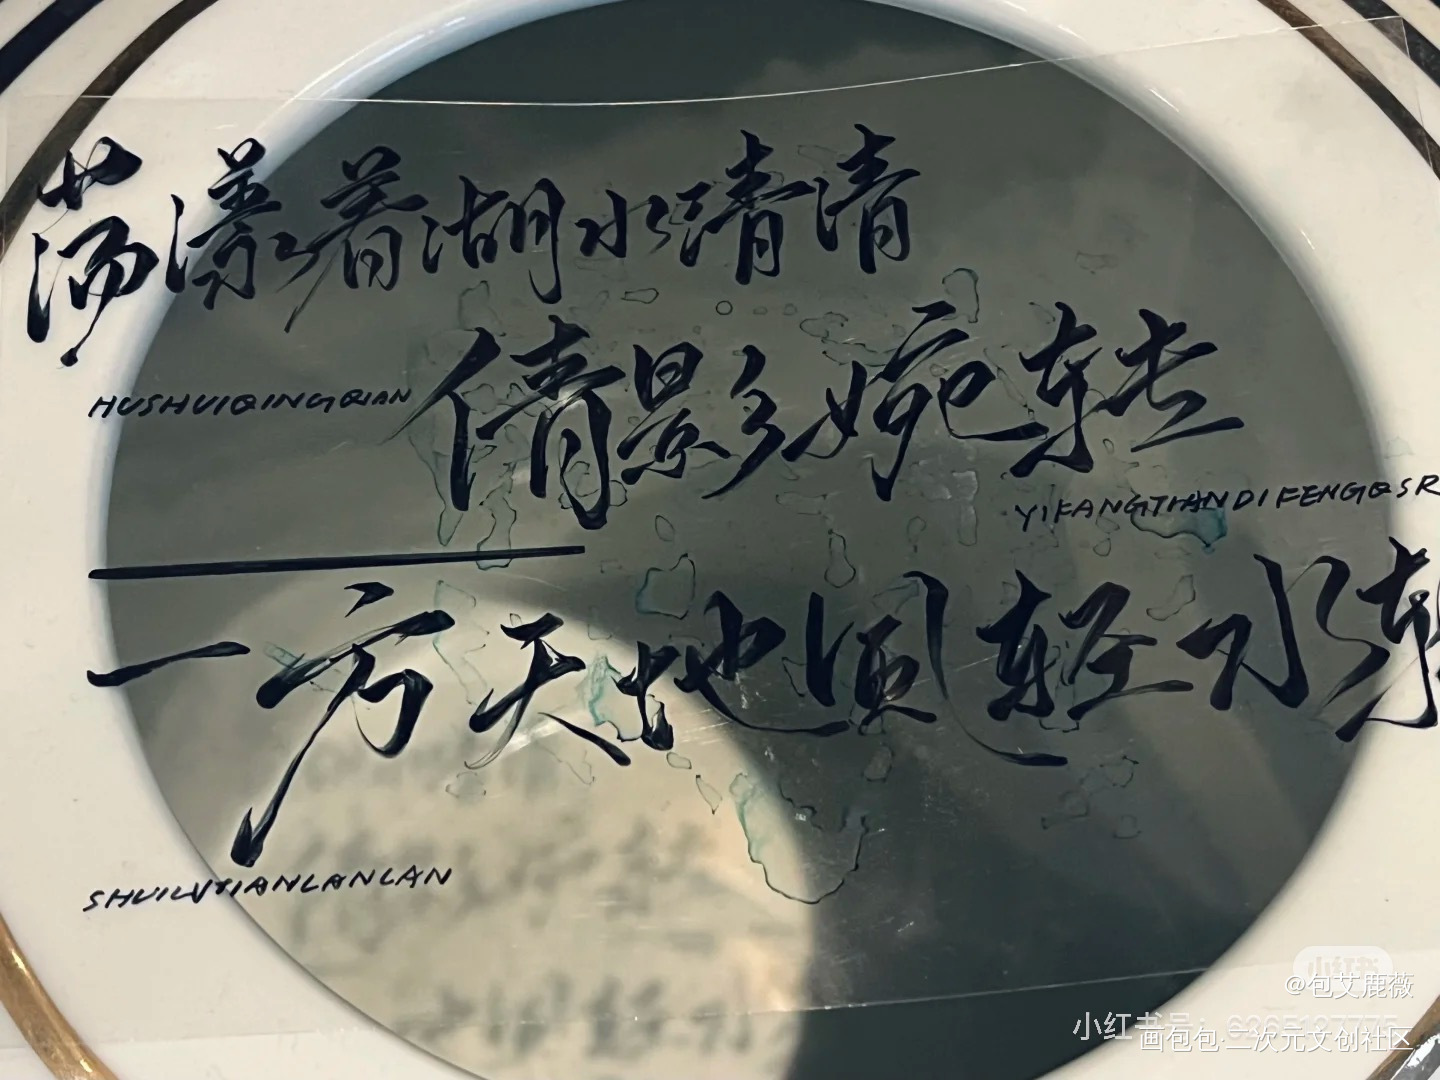 荡漾着湖水清清
HUSHUIQINGQIAN
倩影婉转
YIFANGTIANDIFENGQSR
一方天地风轻水转
SHUILVTIANLANLAN
小红书
@包艾鹿薇
小红书号：6365127775
画包包·二次元文创社区